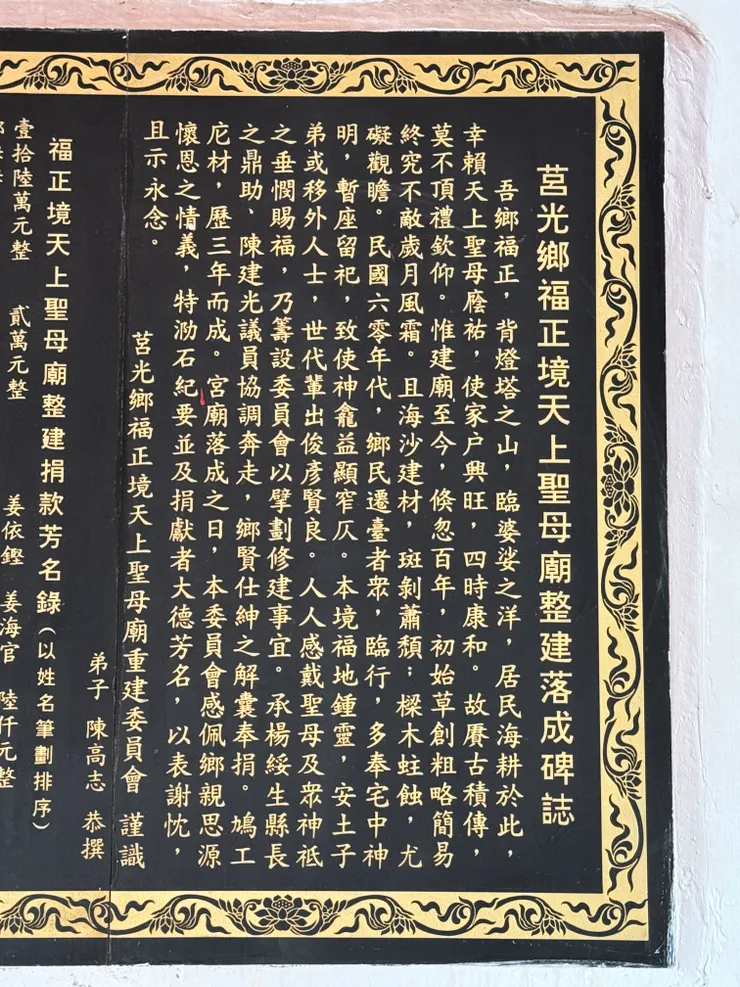 莒光鄉福正境天上聖母廟整建落成碑誌
吾鄉福正，背燈塔之山，臨婆娑之洋，居民海耕於此，
幸賴天上聖母廕祐，使家户興旺，四時康和。故賡古積傳，
莫不頂禮欽仰。惟建廟至今，倏忽百年，初始草創粗略簡易
終究不敵歲月風霜。且海沙建材，斑剝蕭頹；樑木蛀蝕，尤
礙觀瞻。民國六零年代，鄉民遷臺者衆，臨行，多奉宅中神
明，暫座留祀，致使神龕益顯窄仄。本境福地鍾靈，安土子
弟或移外人士，世代輩出俊彥賢良。人人感戴聖母及衆神祗
之垂憫賜福，乃籌設委員會以擘劃修建事宜。承楊綏生縣長
之鼎助、陳建光議員協調奔走，鄉賢仕紳之解囊奉捐。鳩工
庀材，歷三年而成。宮廟落成之日，本委員會感佩鄉親思源
懷恩之情義，特泐石紀要並及捐獻者大德芳名，以表謝忱，
且示永念。
莒光鄉福正境天上聖母廟重建委員會 謹識
弟子 陳高志 恭撰
福正境天上聖母廟整建捐款芳名錄（以姓名筆劃排序）
壹拾陸萬元整 貳萬元整 姜依鏗 姜海官 陸仟元整